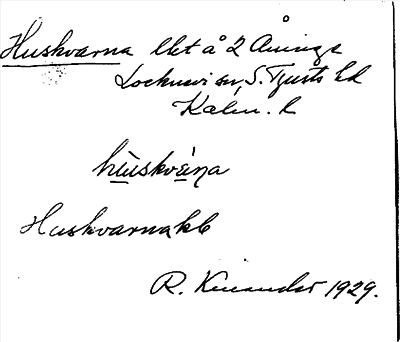 Huskvarna llet å 2 Ånings
Locknevi sn, S. Tjusts hd
Kalm. l
hùskvàṇa
Huskvarnakb
R. Kinander 1929.